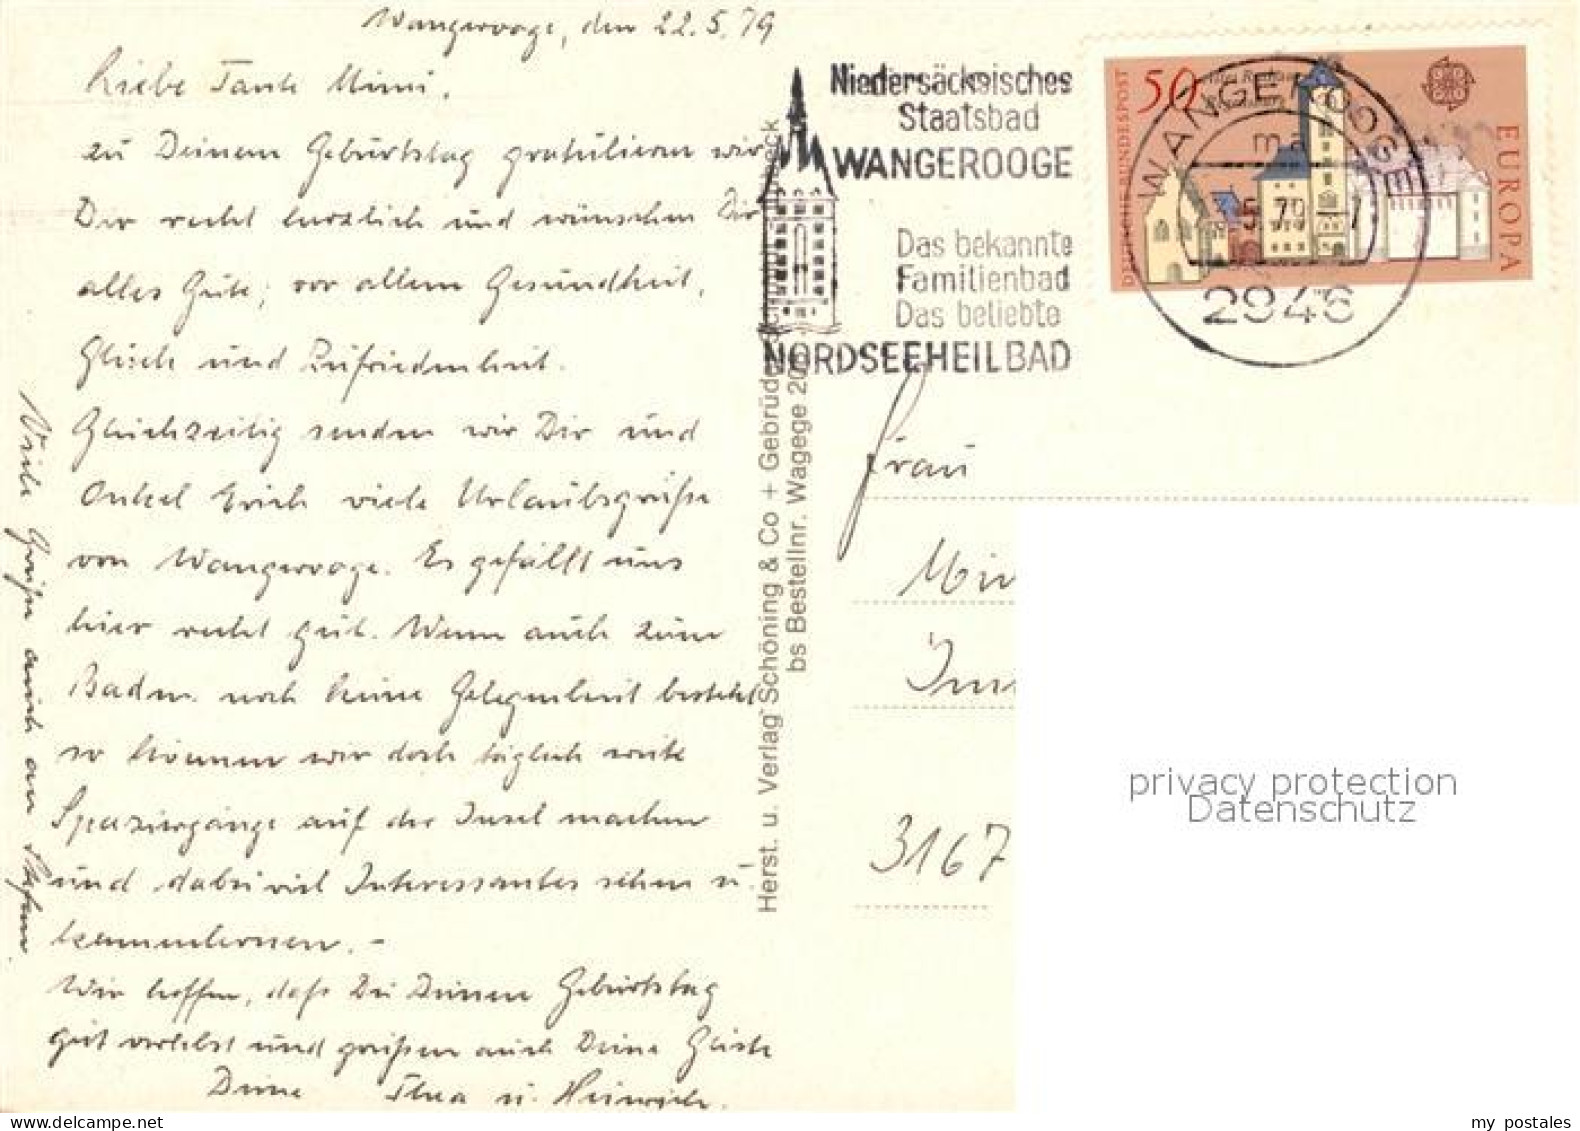 Wangerooge, den 22.5.79
Liebe Tante Mimi,
zu Deinem Geburtstag gratulieren wir
Dir recht herzlich und wünschen Dir
alles Gute, vor allem Gesundheit,
Glück und Zufriedenheit.
Gleichzeitig senden wir Dir und
Onkel Erich viele Urlaubsgrüße
von Wangerooge. Es gefällt uns
hier recht gut. Wenn auch zum
Baden noch keine Gelegenheit besteht
so können wir doch täglich weite
Spaziergänge auf der Insel machen
und dabei viel Interessantes sehen u.
kennenlernen. -
Wir hoffen, daß Du Deinen Geburtstag
gut verlebst und grüßen auch Deine Gäste
Deine Thea u. Heinrich.
Viele Grüße auch an Stefan.
Herst. u. Verlag Schöning & Co + Gebrüder
bs Bestellnr. Wagege
Niedersächsisches
Staatsbad
WANGEROOGE
Das bekannte
Familienbad
Das beliebte
NORDSEEHEILBAD
DEUTSCHE BUNDESPOST
50
EUROPA
WANGEROOGE
ma
5.79
2946
Frau
3167
privacy protection
Datenschutz
www.delcampe.net
my postales